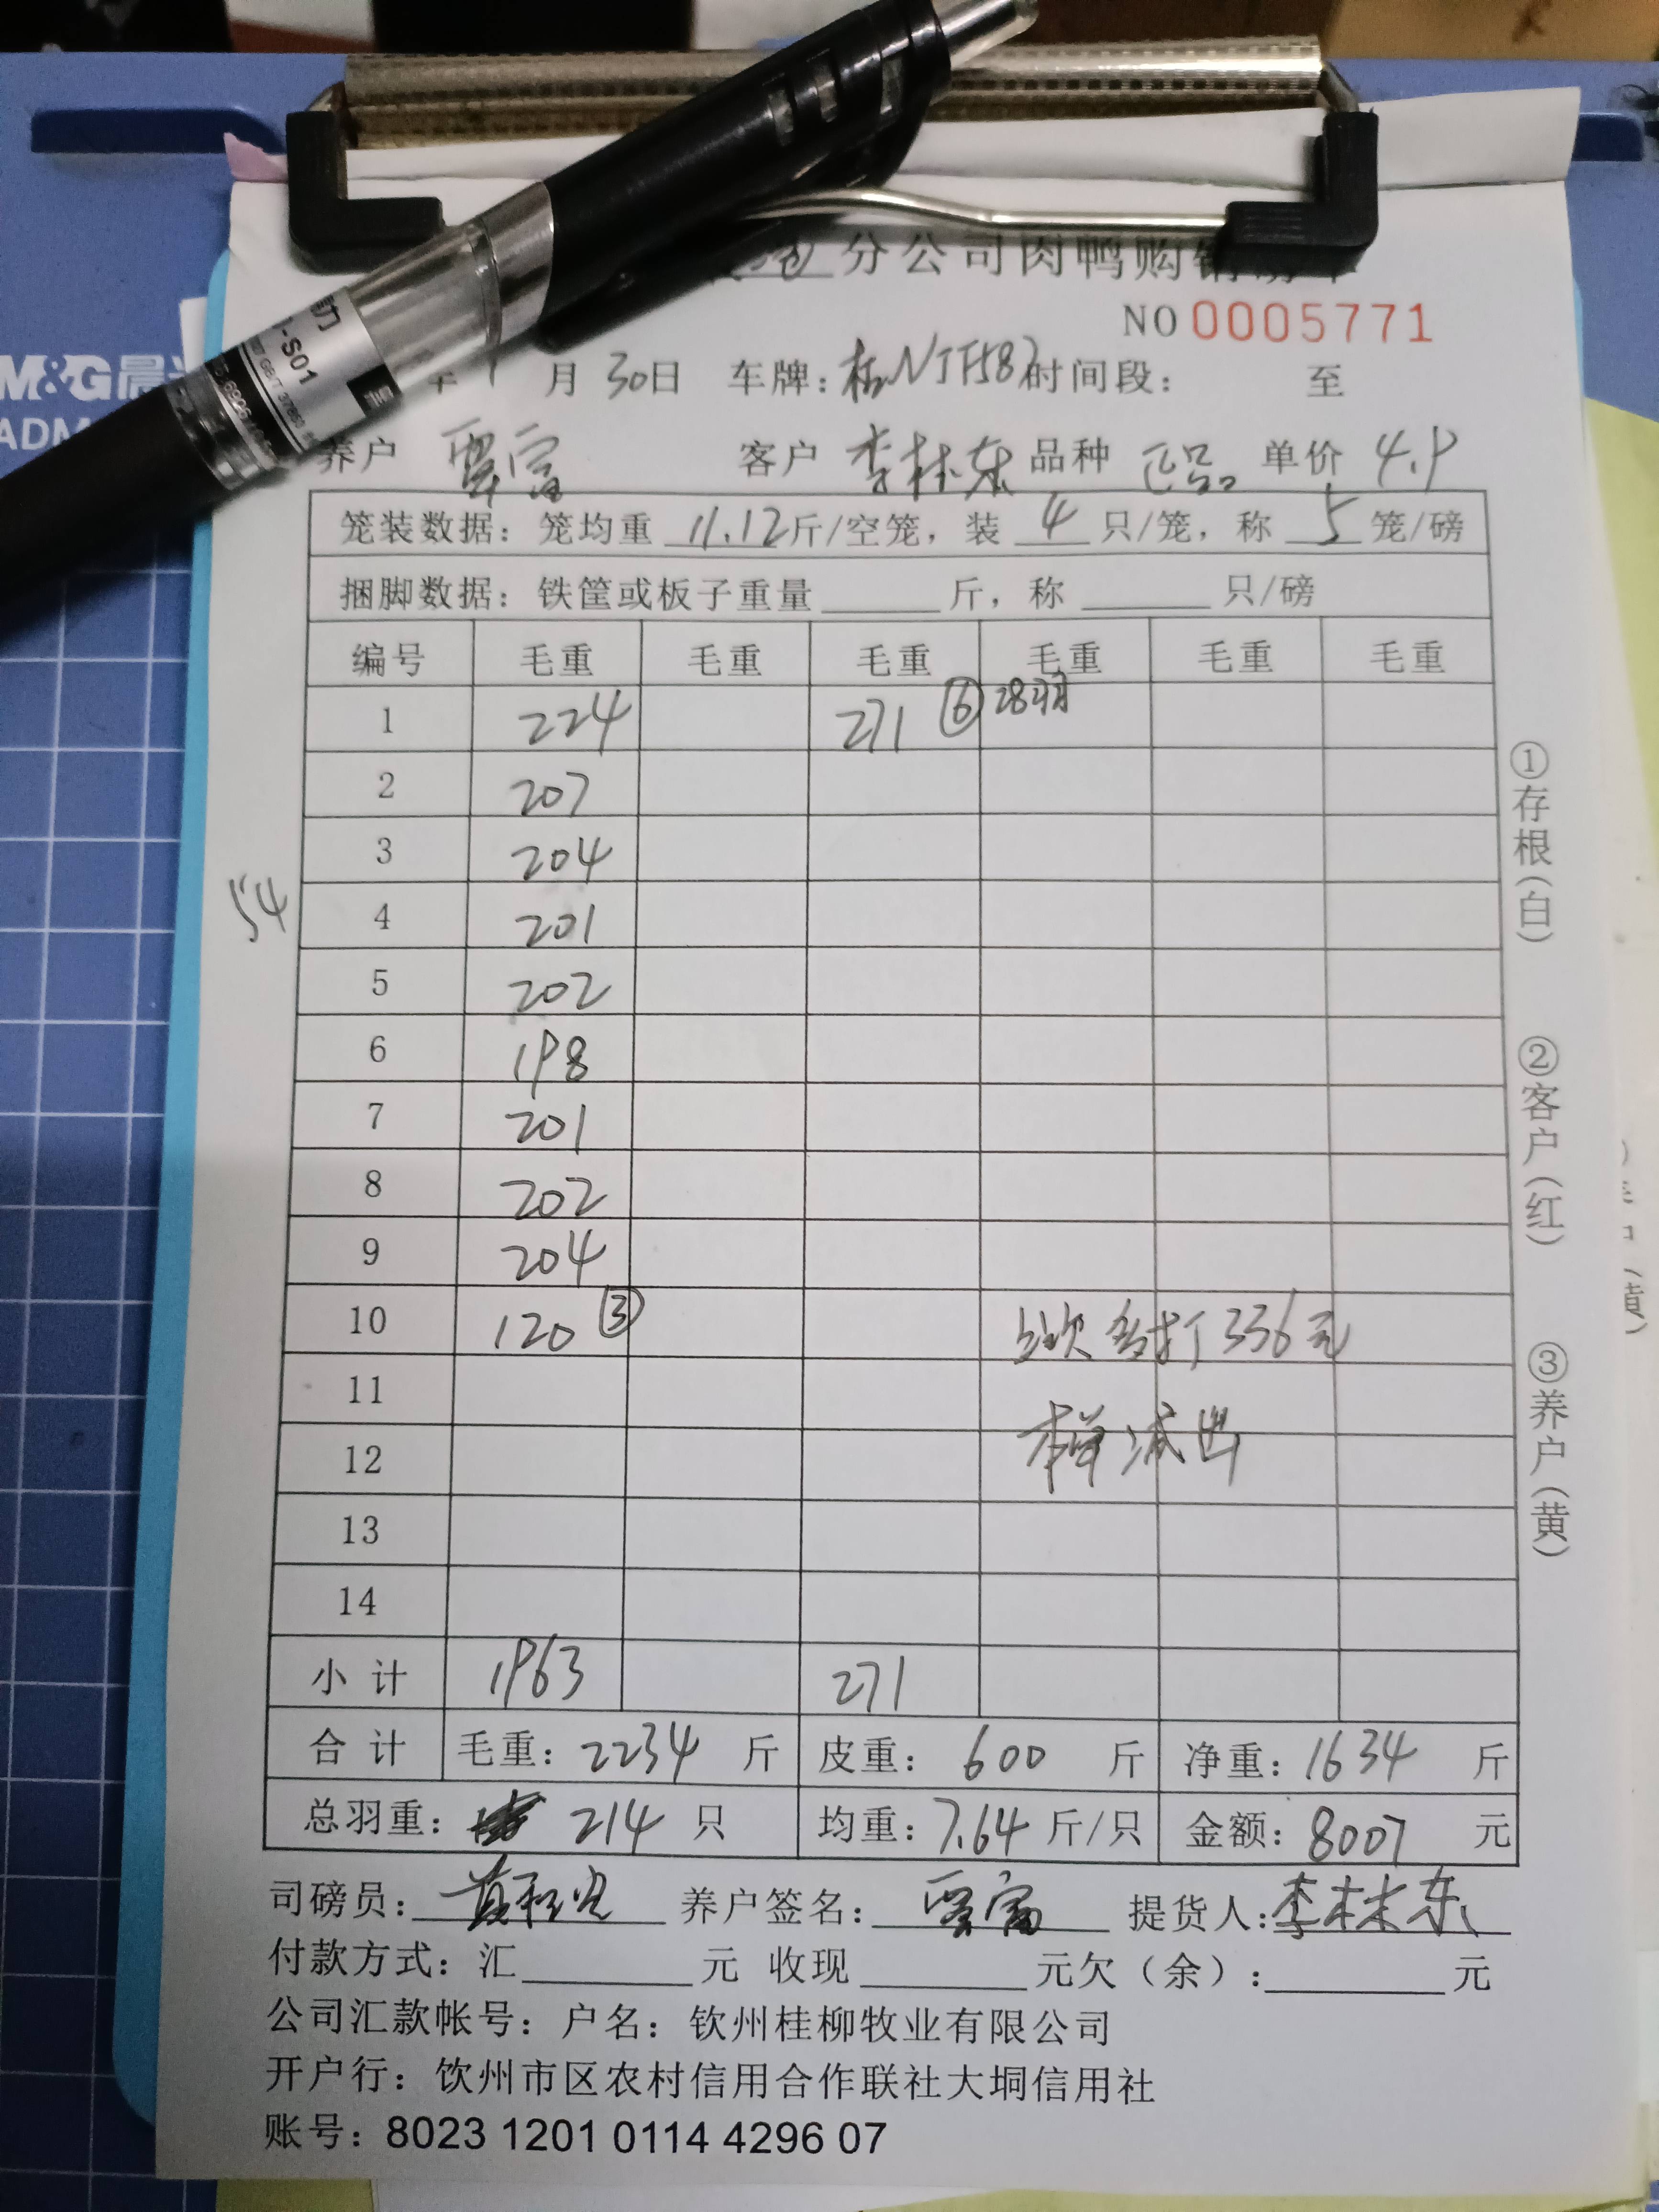 分公司肉鸭购销
NO 0005771
M&G晨
月 30日 车牌: 时间段: 至
养户 覃富 客户 李林东 品种 正品 单价 4.9
笼装数据: 笼均重 11.12斤/空笼, 装 4 只/笼, 称 5 笼/磅
捆脚数据: 铁筐或板子重量______斤, 称______只/磅
编号 毛重 毛重 毛重 毛重 毛重 毛重
1 224 271 ⑥ 28羽
2 207
3 204
54
4 201
5 202
6 198
7 201
8 202
9 204
10 120 ③ 欠多打336元
11
12 本单减出
13
14
小计 1963 271
合计 毛重: 2234 斤 皮重: 600 斤 净重: 1634 斤
总羽重: 214 只 均重: 7.64 斤/只 金额: 8007 元
司磅员: 养户签名: 覃富 提货人: 李林东
付款方式: 汇______元 收现______元欠(余):______元
公司汇款帐号: 户名: 钦州桂柳牧业有限公司
开户行: 钦州市区农村信用合作联社大垌信用社
账号: 8023 1201 0114 4296 07
①存根(白)
②客户(红)
③养户(黄)